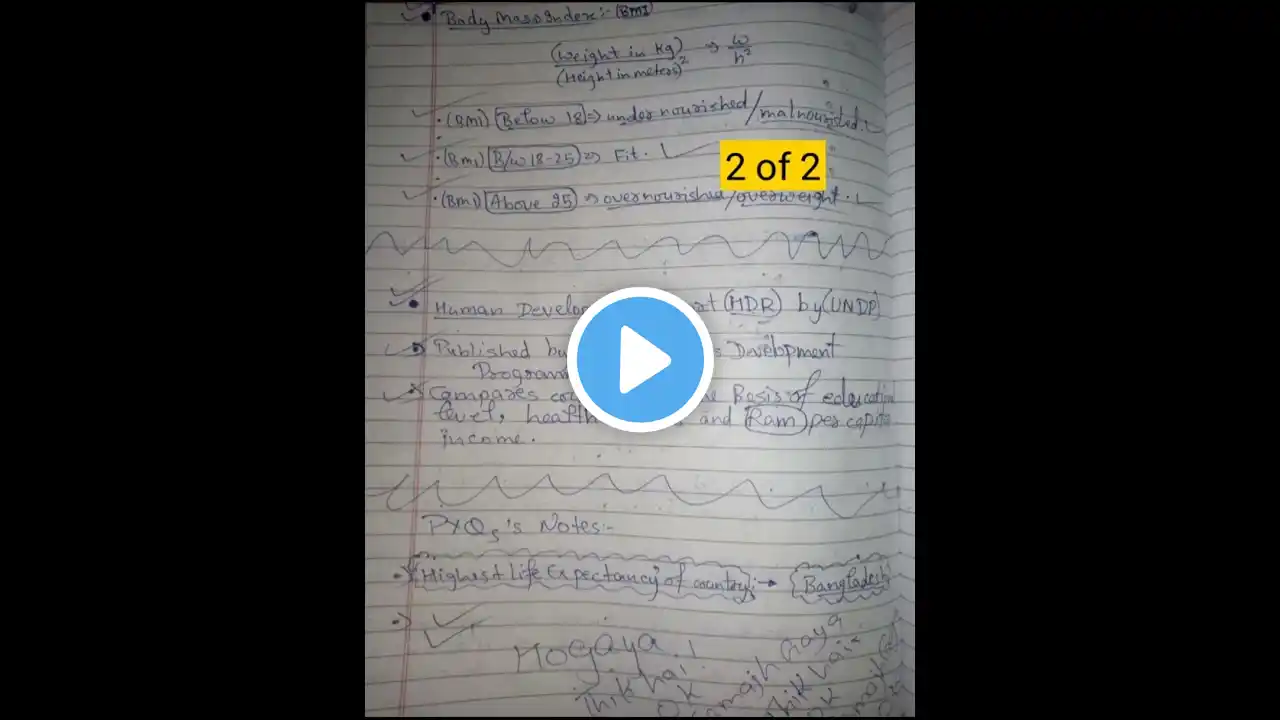 Body Mass Index:- (BMI)
(Weight in kg) ⇒ w
(Height in meters)² h²
• (BMI) Below 18 ⇒ under nourished/malnourished.
• (BMI) B/w 18-25 ⇒ Fit.
2 of 2
• (BMI) Above 25 ⇒ overnourished/overweight.
• Human Develo rt (HDR) by (UNDP)
• Published by s Development
Program
Compares co e Basis of education
level, health and Ram per capita
income.
PYQs's Notes:-
Highest life Expectancy of country:→ Bangladesh
Hogaya.
Thik hai
OK Samajh Gaya
Thik
OK